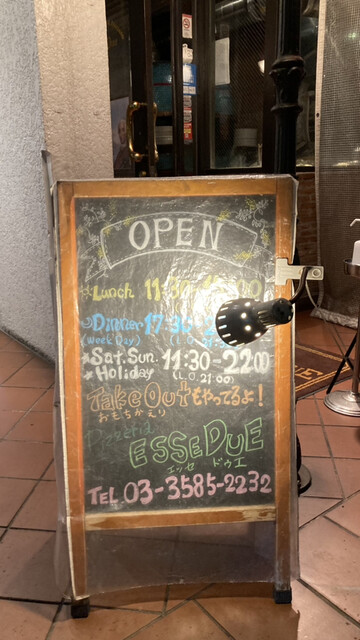 OPEN
Lunch 11:30
Dinner 17:30
(Week Day) (L.O.
★Sat.Sun. 11:30-22:00
★Holiday (L.O.21:00)
Take Outもやってるよ!
おもちかえり
Pizzeria
ESSEDUE
エッセ ドゥエ
TEL 03-3585-2232